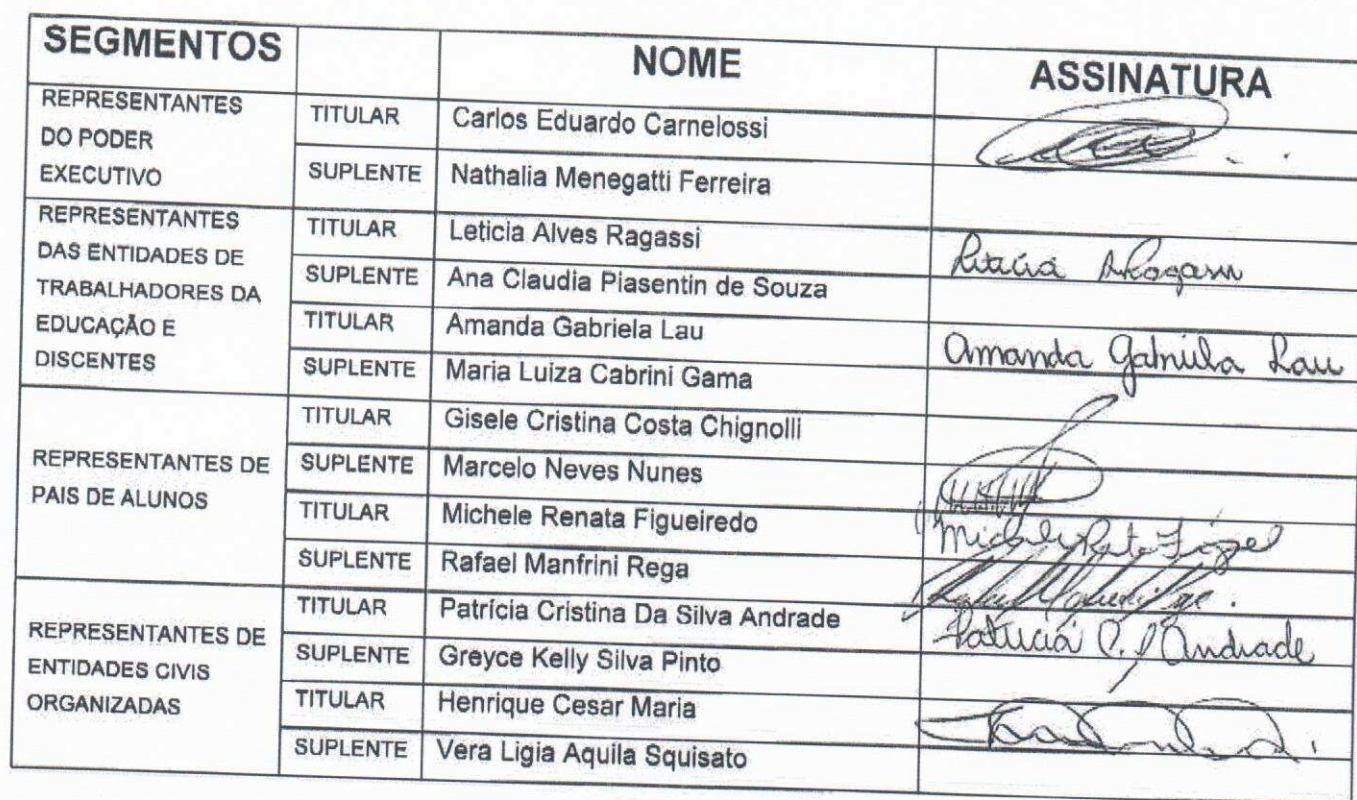 SEGMENTOS NOME ASSINATURA
REPRESENTANTES
DO PODER
EXECUTIVO
TITULAR Carlos Eduardo Carnelossi
SUPLENTE Nathalia Menegatti Ferreira
REPRESENTANTES
DAS ENTIDADES DE
TRABALHADORES DA
EDUCAÇÃO E
DISCENTES
TITULAR Leticia Alves Ragassi
SUPLENTE Ana Claudia Piasentin de Souza
TITULAR Amanda Gabriela Lau Amanda Gabriela Lau
SUPLENTE Maria Luiza Cabrini Gama
REPRESENTANTES DE
PAIS DE ALUNOS
TITULAR Gisele Cristina Costa Chignolli
SUPLENTE Marcelo Neves Nunes
TITULAR Michele Renata Figueiredo
SUPLENTE Rafael Manfrini Rega
REPRESENTANTES DE
ENTIDADES CIVIS
ORGANIZADAS
TITULAR Patrícia Cristina Da Silva Andrade Patrícia C. S Andrade
SUPLENTE Greyce Kelly Silva Pinto
TITULAR Henrique Cesar Maria
SUPLENTE Vera Ligia Aquila Squisato